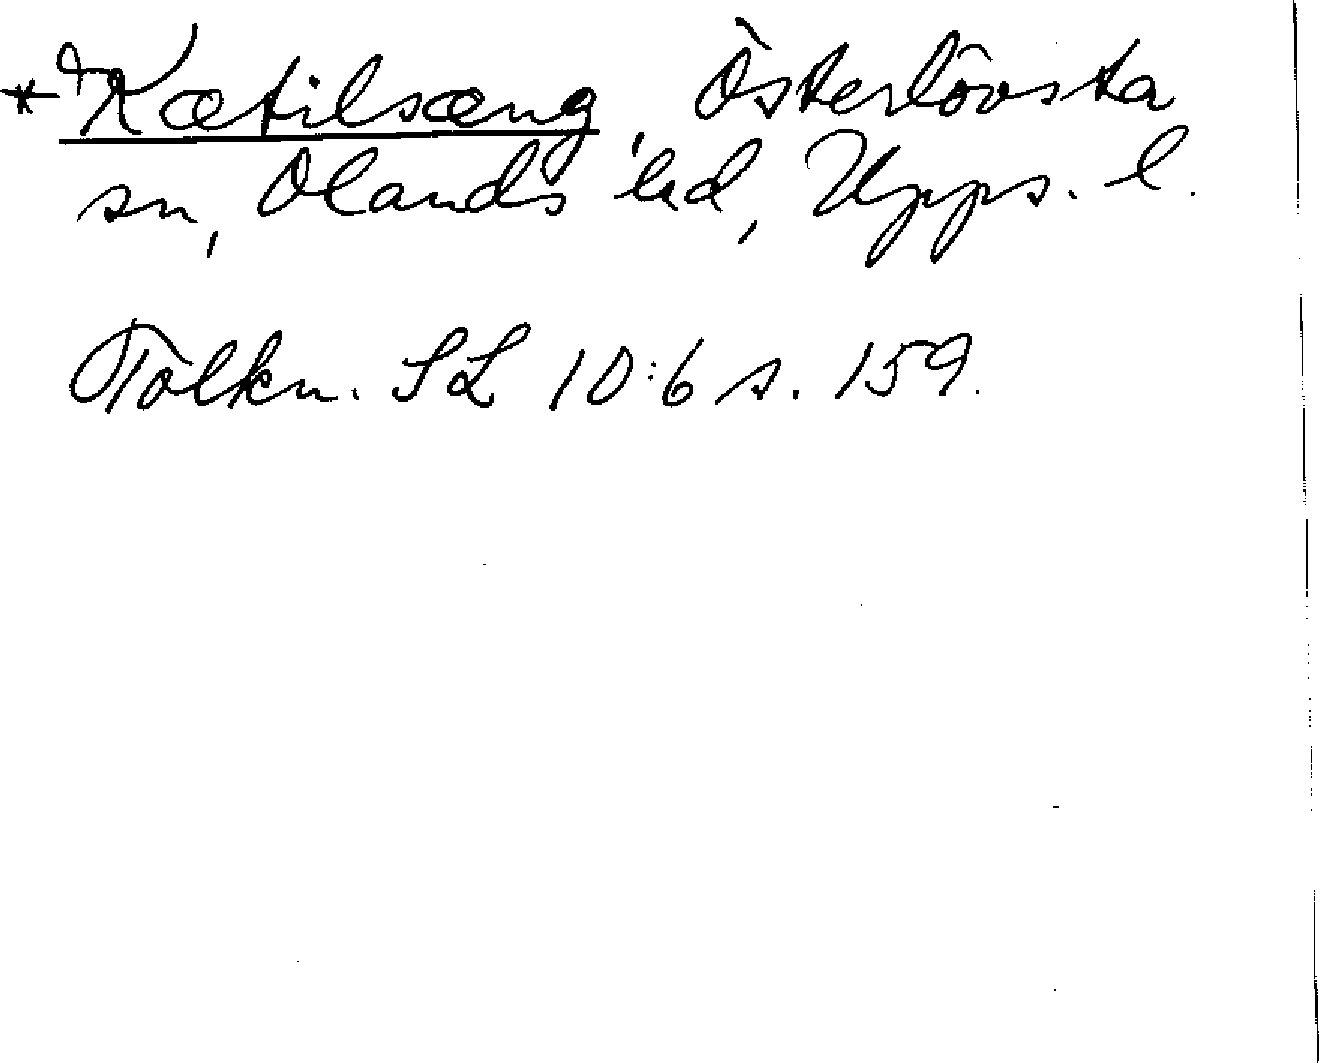 *Kætilsæng, Österlövsta
sn, Olands hd, Upps. l.
Tolkn. SL 10:6 s. 159.